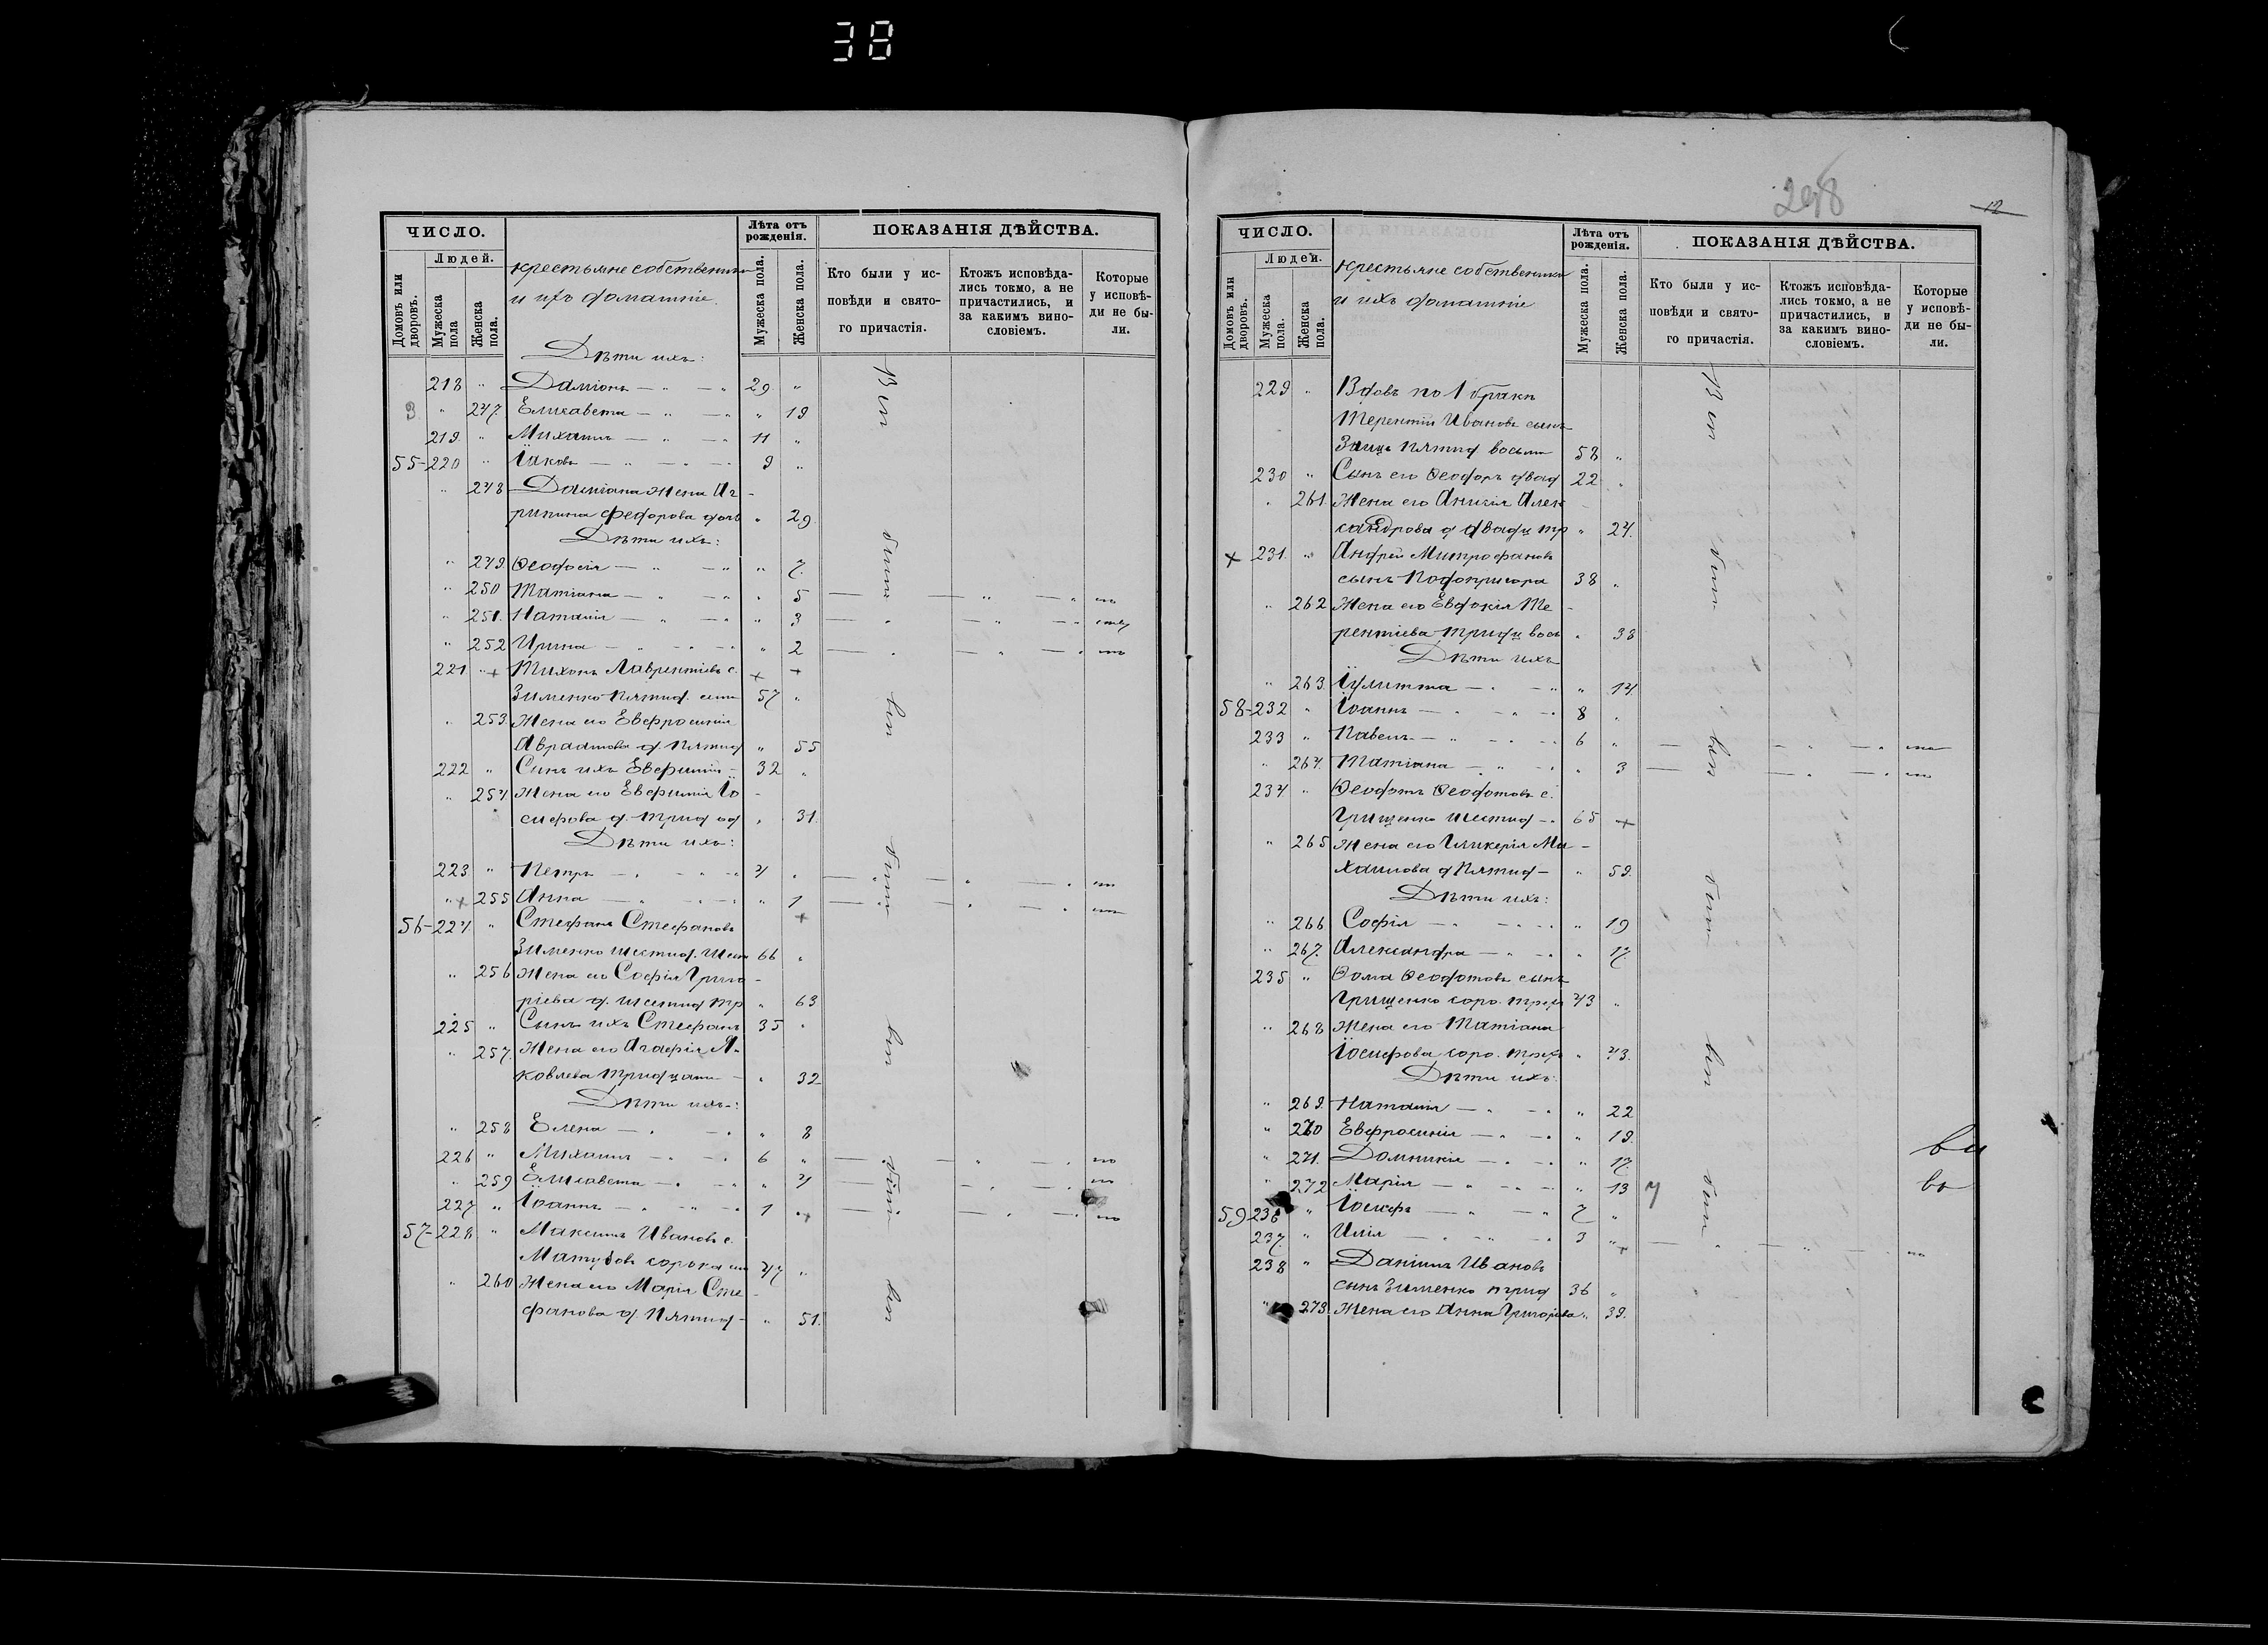 38
ЧИСЛО.
Людей.
Домовъ или дворовъ.
Мужеска пола
Женска пола.
крестьяне собственники
и ихъ домашніе.
Лѣта отъ рожденія.
Мужеска пола.
Женска пола.
ПОКАЗАНІЯ ДѢЙСТВА.
Кто были у исповѣди и святого причастія.
Ктожъ исповѣдались токмо, а не причастились, и за какимъ винословіемъ.
Которые у исповѣди не были.
Дѣти ихъ:
218 " Даміонъ — " — " 29 "
3 " 247. Елисавета — " — " " 19
219. " Михаилъ — " — " 11 "
55-220 " Іаковъ — " — " 9 "
" 248 Даміана жена Аг-
рипина Федорова дочь " 29.
Дѣти ихъ:
" 249. Ѳеодосія — " — " " 7.
" 250 Татіана — " — " " 5
" 251. Наталія — " — " " 3
" 252 Ирина — " — " " 2
221 " + Тихонъ Лаврентіевъ с. + +
Зименко пятид. семь 57 "
" 253. Жена его Евфросинія
Авраамова д. пятид " 55
222 " Сынъ ихъ Евфимій - 32 "
" 254 Жена его Евфимія Іо-
сифова д. тридод " 31.
Дѣти ихъ:
223 " Петръ — " — " 4 "
" + 255 Анна — " — " " 1
56-224 " Стефанъ Стефановъ +
Зименко шестид. шест 66 "
" 256 Жена его Софія Григо-
ріева д. шестид тр " 63
225 " Сынъ ихъ Стефанъ 35 "
" 257. Жена его Агафія Я-
ковлева тридцати — " 32
Дѣти ихъ:
" 258 Елена — " — " " 8
226 " Михаилъ — " — " 6 "
" 259 Елисавета — " — " " 4
227 " Іоаннъ — " — " 1 " +
57-228 " Максимъ Ивановъ с.
сорока 47 "
" 260 Жена его Марія Сте-
фанова д. пятид — " 51.
298
12
ЧИСЛО.
Людей.
Домовъ или дворовъ.
Мужеска пола.
Женска пола.
крестьяне собственники
и ихъ домашніе
Лѣта отъ рожденія.
Мужеска пола.
Женска пола.
ПОКАЗАНІЯ ДѢЙСТВА.
Кто были у исповѣди и святого причастія.
Ктожъ исповѣдались токмо, а не причастились, и за какимъ винословіемъ.
Которые у исповѣди не были.
229 " Вдовъ по 1 бракѣ
Терентій Ивановъ сынъ
пятид восьми 58 "
230 " Сынъ его Ѳеодоръ двад 22 "
" 261. Жена его Алек
сандрова д двадц тр " 24.
+ 231. " Андрей Митрофановъ
сынъ Подопригора 38 "
" 262 Жена его Евдокія Те-
рентіева тридц вось " 38
Дѣти ихъ
" 263. Іулитта — " — " " 14.
58-232 " Іоаннъ — " — " 8 "
233 " Павелъ — " — " 6 "
" 264. Татіана — " — " " 3
234 " Ѳеодотъ Ѳеодотовъ с.
Грищенко шестид — 65 +
" 265 Жена его Гликерія Ми-
хаилова д пятид — " 59.
Дѣти ихъ:
" 266 Софія — " — " " 19
" 267. Александра — " — " " 17.
235 " Ѳома Ѳеодотовъ сынъ
Грищенко соро. трех 43 "
" 268 Жена его Татіана
Іосифова соро. трех " 43.
Дѣти ихъ:
" 269. Наталія — " — " " 22
" 270 Евфросинія — " — " " 19.
" 271. Домникія — " — " " 17.
" 272 Марія — " — " " 13
59 236 " Іосифъ — " — " 7 "
237. " Илія — " — " 3 " +
238 " Даніилъ Ивановъ
сынъ Зименко трид 36 "
" 273. Жена его Анна Григорьева " 39.